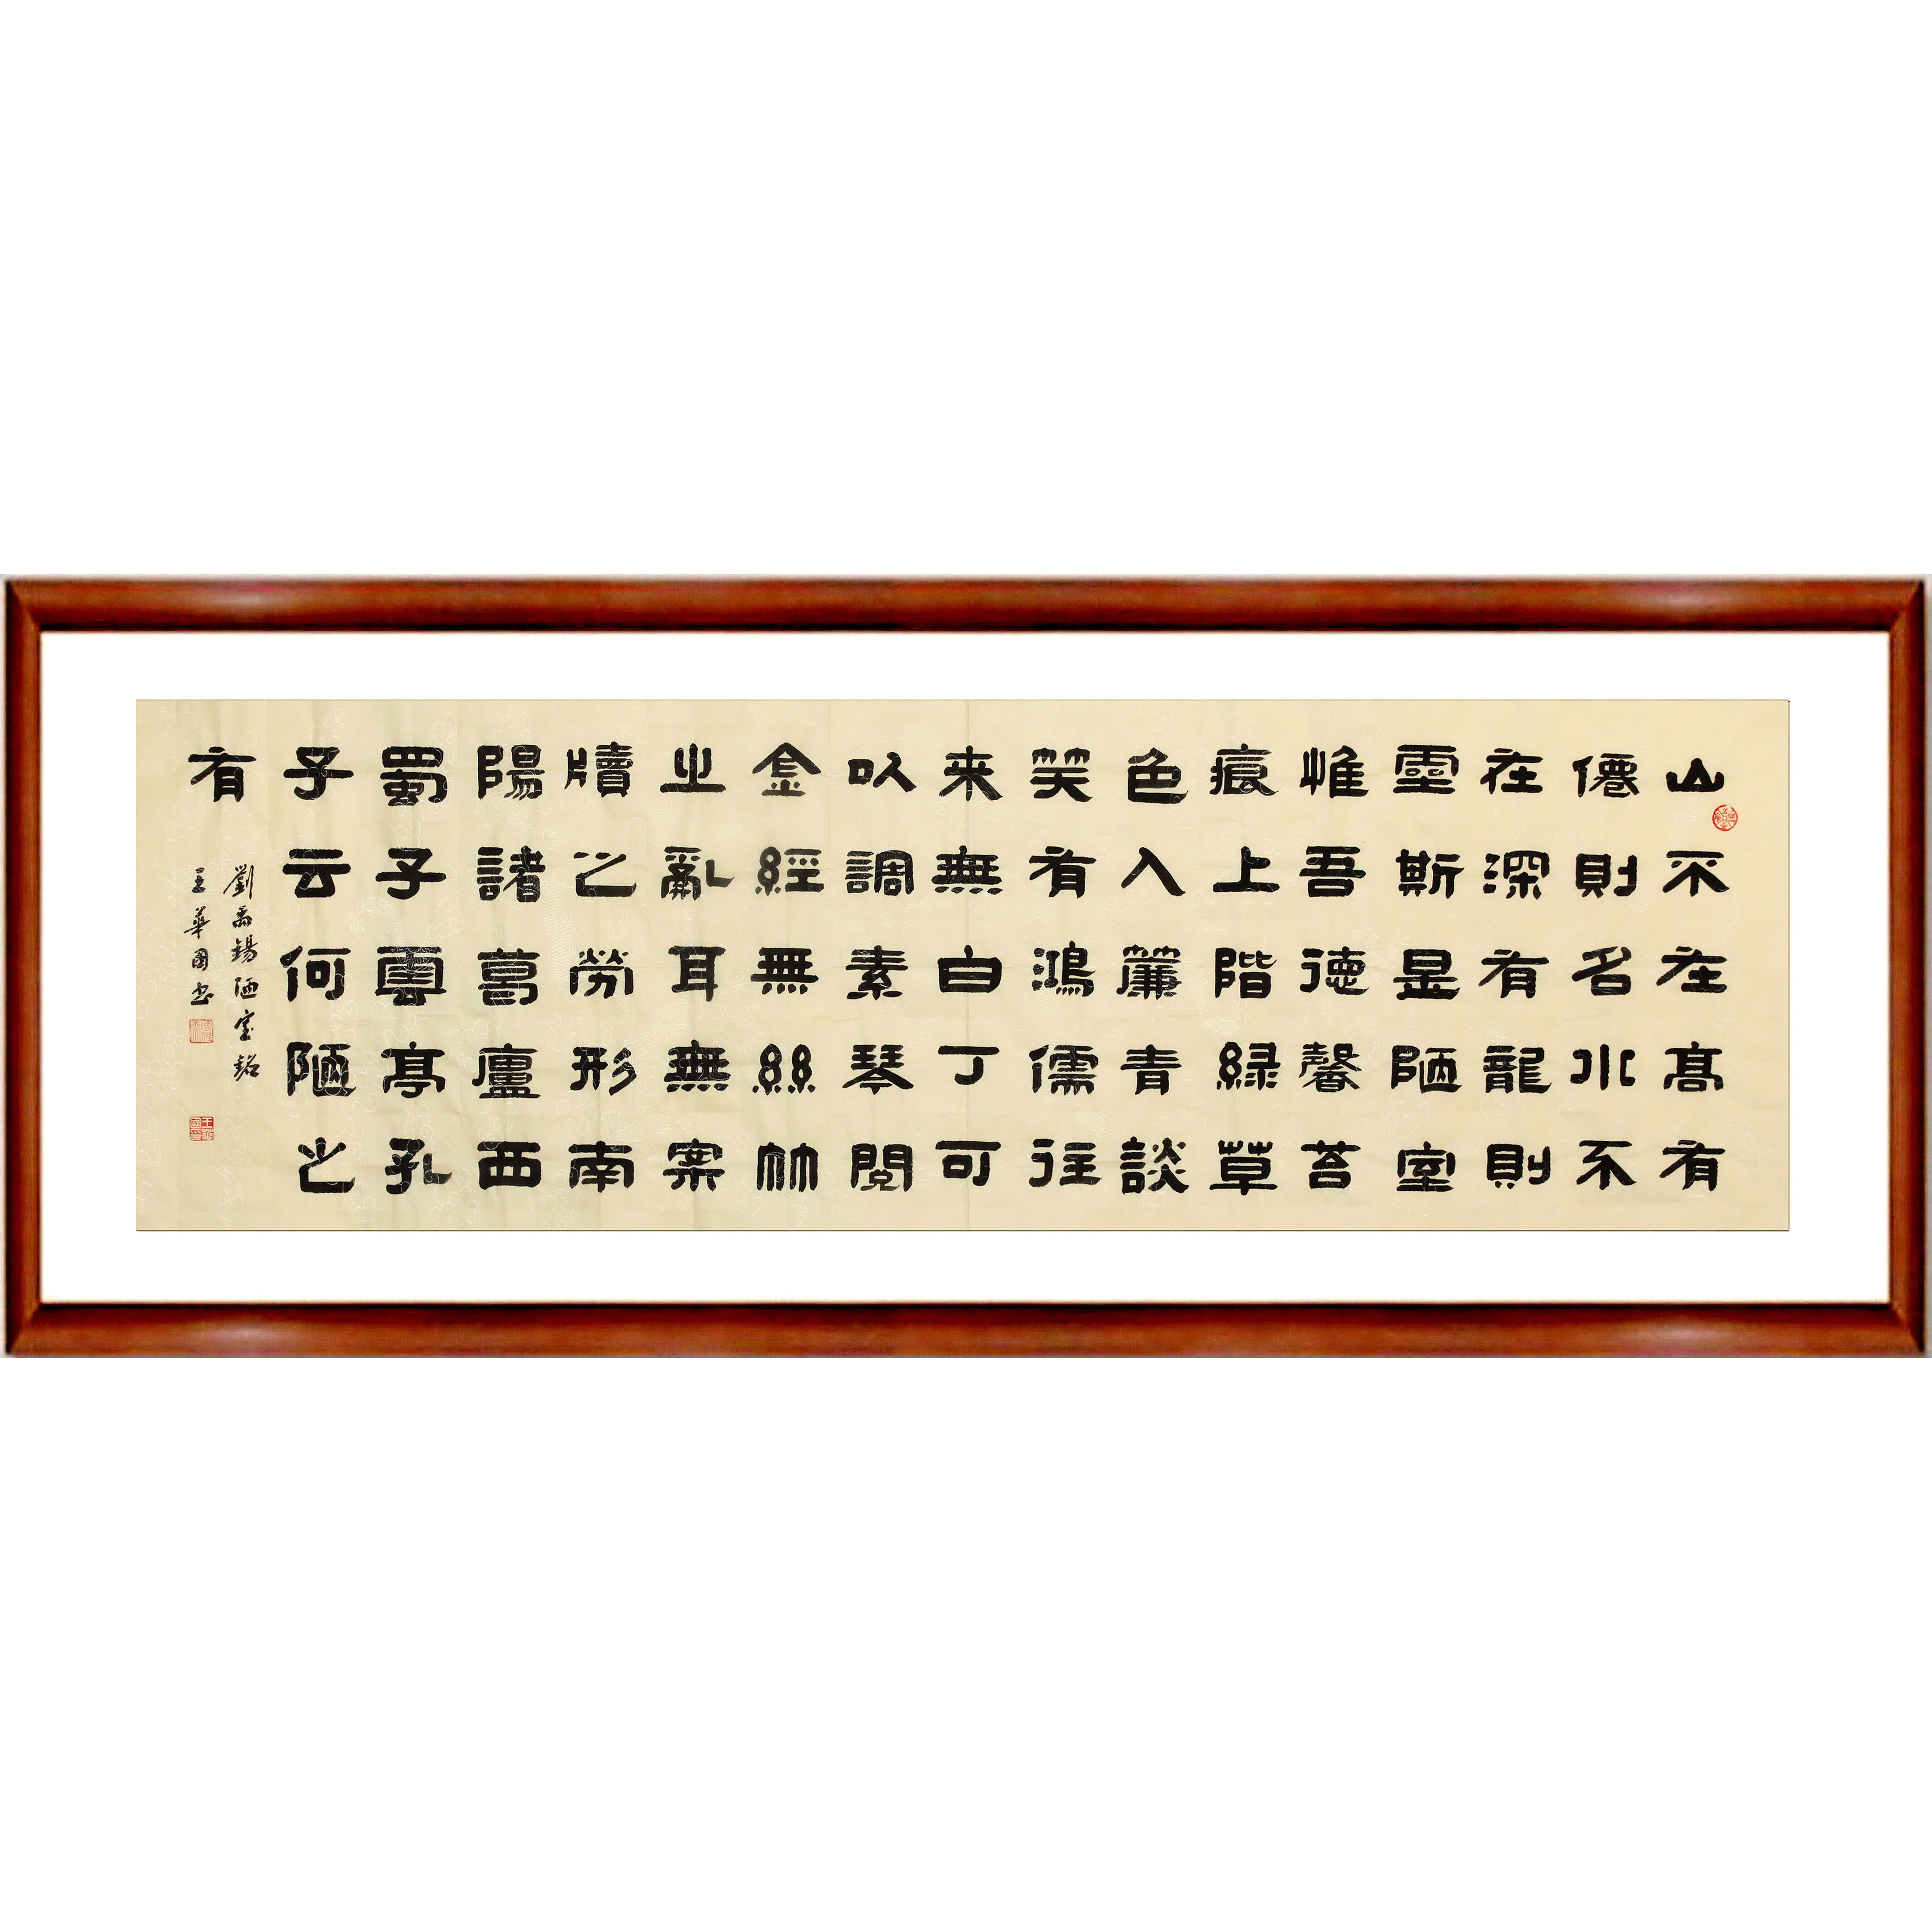 山不在髙有
僊則名水不
在深有龍則
靈斯是陋室
惟吾德馨苔
痕上階緑草
色入簾青談
笑有鴻儒往
来無白丁可
以調素琴閲
金經無絲竹
之亂耳無案
牘之勞形南
陽諸葛廬西
蜀子雲亭孔
子云何陋之
有
劉禹錫陋室銘
王華國书